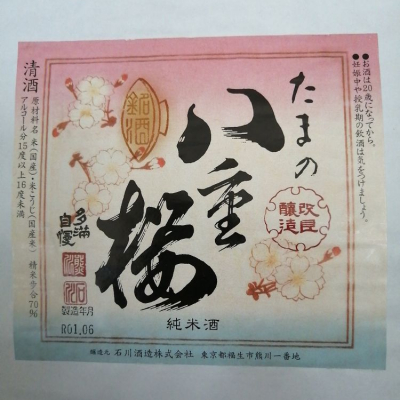 ●お酒は20歳になってから。
●妊娠中や授乳期の飲酒は気をつけましょう。
たまの
八重桜
銘酒
改良
醸造
多満自慢
清酒
原材料名 米(国産)・米こうじ(国産米) 精米歩合70%
アルコール分15度以上16度未満
製造年月
R01.06
純米酒
醸造元 石川酒造株式会社 東京都福生市熊川一番地